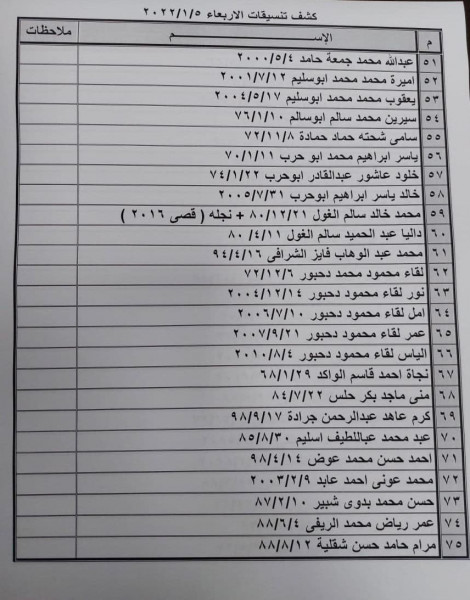 كشف تنسيقات الاربعاء ٢٠٢٢/١/٥
م الإســـــم ملاحظات
٥١ عبدالله محمد جمعة حامد ٢٠٠٠/٥/٤
٥٢ اميرة محمد محمد ابوسليم ٢٠٠١/٧/١٢
٥٣ يعقوب محمد محمد ابوسليم ٢٠٠٤/٥/١٧
٥٤ سيرين محمد سالم ابوسالم ٧٦/١/١٠
٥٥ سامى شحته حماد حمادة ٧٢/١١/٨
٥٦ ياسر ابراهيم محمد ابو حرب ٧٠/١/١١
٥٧ خلود عاشور عبدالقادر ابوحرب ٧٤/١/٢٢
٥٨ خالد ياسر ابراهيم ابوحرب ٢٠٠٥/٧/٣١
٥٩ محمد خالد سالم الغول ٨٠/١٢/٢١ + نجله ( قصى ٢٠١٦ )
٦٠ داليا عبد الحميد سالم الغول ٨٠/٤/١١
٦١ محمد عبد الوهاب فايز الشرافى ٩٤/٤/١٦
٦٢ لقاء محمود محمد دحبور ٧٢/١٢/٦
٦٣ نور لقاء محمود دحبور ٢٠٠٤/١٢/١٤
٦٤ امل لقاء محمود دحبور ٢٠٠٦/٧/١٠
٦٥ عمر لقاء محمود دحبور ٢٠٠٧/٩/٢١
٦٦ الياس لقاء محمود دحبور ٢٠١٠/٨/٤
٦٧ نجاة احمد قاسم الواكد ٦٨/١/٢٩
٦٨ منى ماجد بكر حلس ٨٤/٧/٢٢
٦٩ كرم عاهد عبدالرحمن جرادة ٩٨/٩/١٧
٧٠ عبد محمد عباللطيف اسليم ٨٥/٨/٣٠
٧١ احمد حسن محمد عوض ٩٨/٤/١٤
٧٢ محمد عونى احمد عابد ٢٠٠٣/٢/٩
٧٣ حسن محمد بدوى شبير ٨٧/٢/١٠
٧٤ عمر رياض محمد الريفى ٨٨/٦/٤
٧٥ مرام حامد حسن شقلية ٨٨/٨/١٢